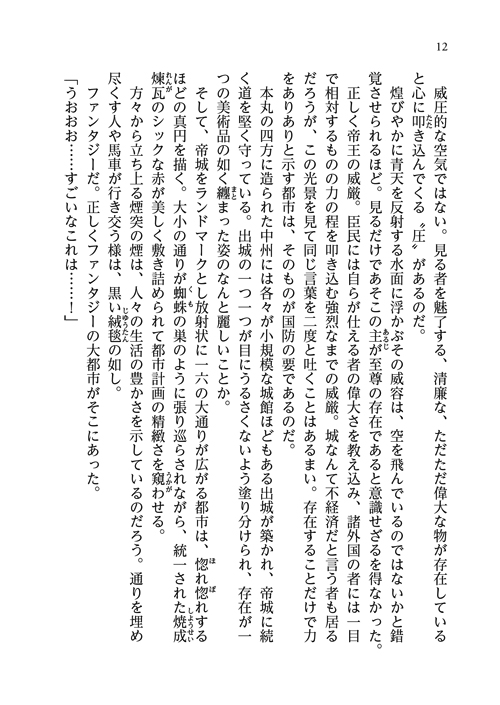 12
威圧的な空気ではない。見る者を魅了する、清廉な、ただただ偉大な物が存在している
と心に叩き込んでくる〝圧〟があるのだ。
煌びやかに青天を反射する水面に浮かぶその威容は、空を飛んでいるのではないかと錯
覚させられるほど。見るだけであそこの主が至尊の存在であると意識せざるを得なかった。
正しく帝王の威厳。臣民には自らが仕える者の偉大さを教え込み、諸外国の者には一目
で相対するものの力の程を叩き込む強烈なまでの威厳。城なんて不経済だと言う者も居る
だろうが、この光景を見て同じ言葉を二度と吐くことはあるまい。存在することだけで力
をありありと示す都市は、そのものが国防の要であるのだ。
本丸の四方に造られた中州には各々が小規模な城館ほどもある出城が築かれ、帝城に続
く道を堅く守っている。出城の一つ一つが目にうるさくないよう塗り分けられ、存在が一
つの美術品の如く纏まった姿のなんと麗しいことか。
そして、帝城をランドマークとし放射状に一六の大通りが広がる都市は、惚れ惚れする
ほどの真円を描く。大小の通りが蜘蛛の巣のように張り巡らされながら、統一された焼成
煉瓦のシックな赤が美しく敷き詰められて都市計画の精緻さを窺わせる。
方々から立ち上る煙突の煙は、人々の生活の豊かさを示しているのだろう。通りを埋め
尽くす人や馬車が行き交う様は、黒い絨毯の如し。
ファンタジーだ。正しくファンタジーの大都市がそこにあった。
「うおおお……すごいなこれは……！」